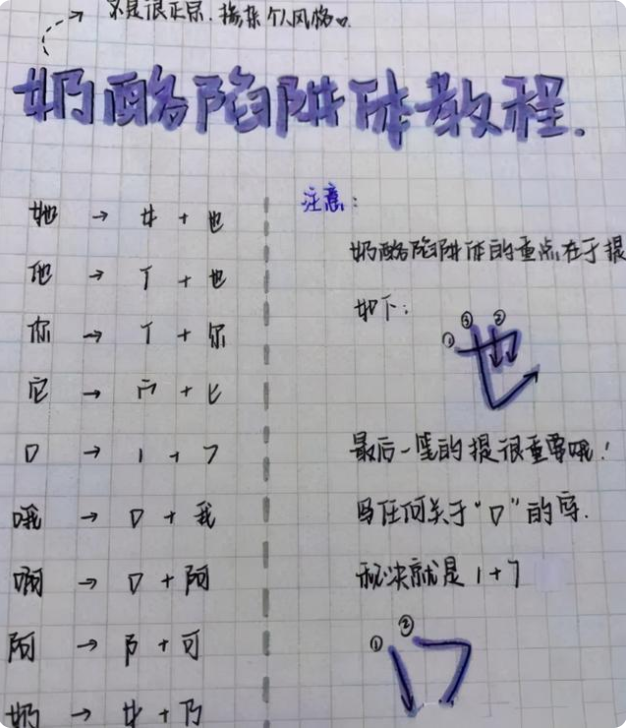 不是很正宗.掺杂个人风格。
奶酪陷阱体教程.
她 → 女 + 也
他 → 亻 + 也
你 → 亻 + 尔
它 → 宀 + 匕
口 → 1 + 7
哦 → 口 + 我
啊 → 口 + 阿
阿 → 阝 + 可
奶 → 女 + 乃
注意:
奶酪陷阱体的重点在于提
如下:
① ③ ②
也
最后一笔的提很重要哦!
写任何关于“口”的字.
秘决就是 1+7
① ②
口